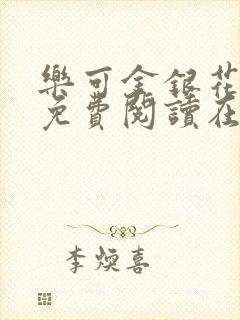 樂可金銀花
免費閱讀在
李煥喜